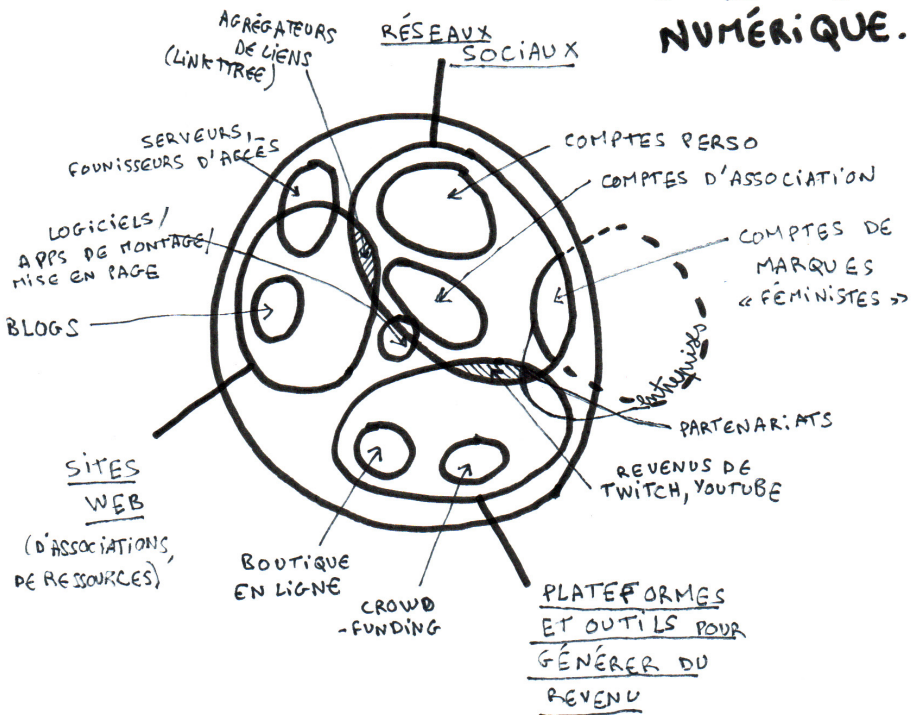 NUMÉRIQUE.
AGRÉGATEURS
DE LIENS
(LINKTTREE)
RÉSEAUX
SOCIAUX
SERVEURS,
FOUNISSEURS D'ACCÈS
COMPTES PERSO
COMPTES D'ASSOCIATION
LOGICIELS/
APPS DE MONTAGE/
MISE EN PAGE
COMPTES DE
MARQUES
« FÉMINISTES »
BLOGS
entreprises
PARTENARIATS
REVENUS DE
TWITCH, YOUTUBE
SITES
WEB
(D'ASSOCIATIONS,
DE RESSOURCES)
BOUTIQUE
EN LIGNE
CROWD
-FUNDING
PLATEFORMES
ET OUTILS POUR
GÉNÉRER DU
REVENU